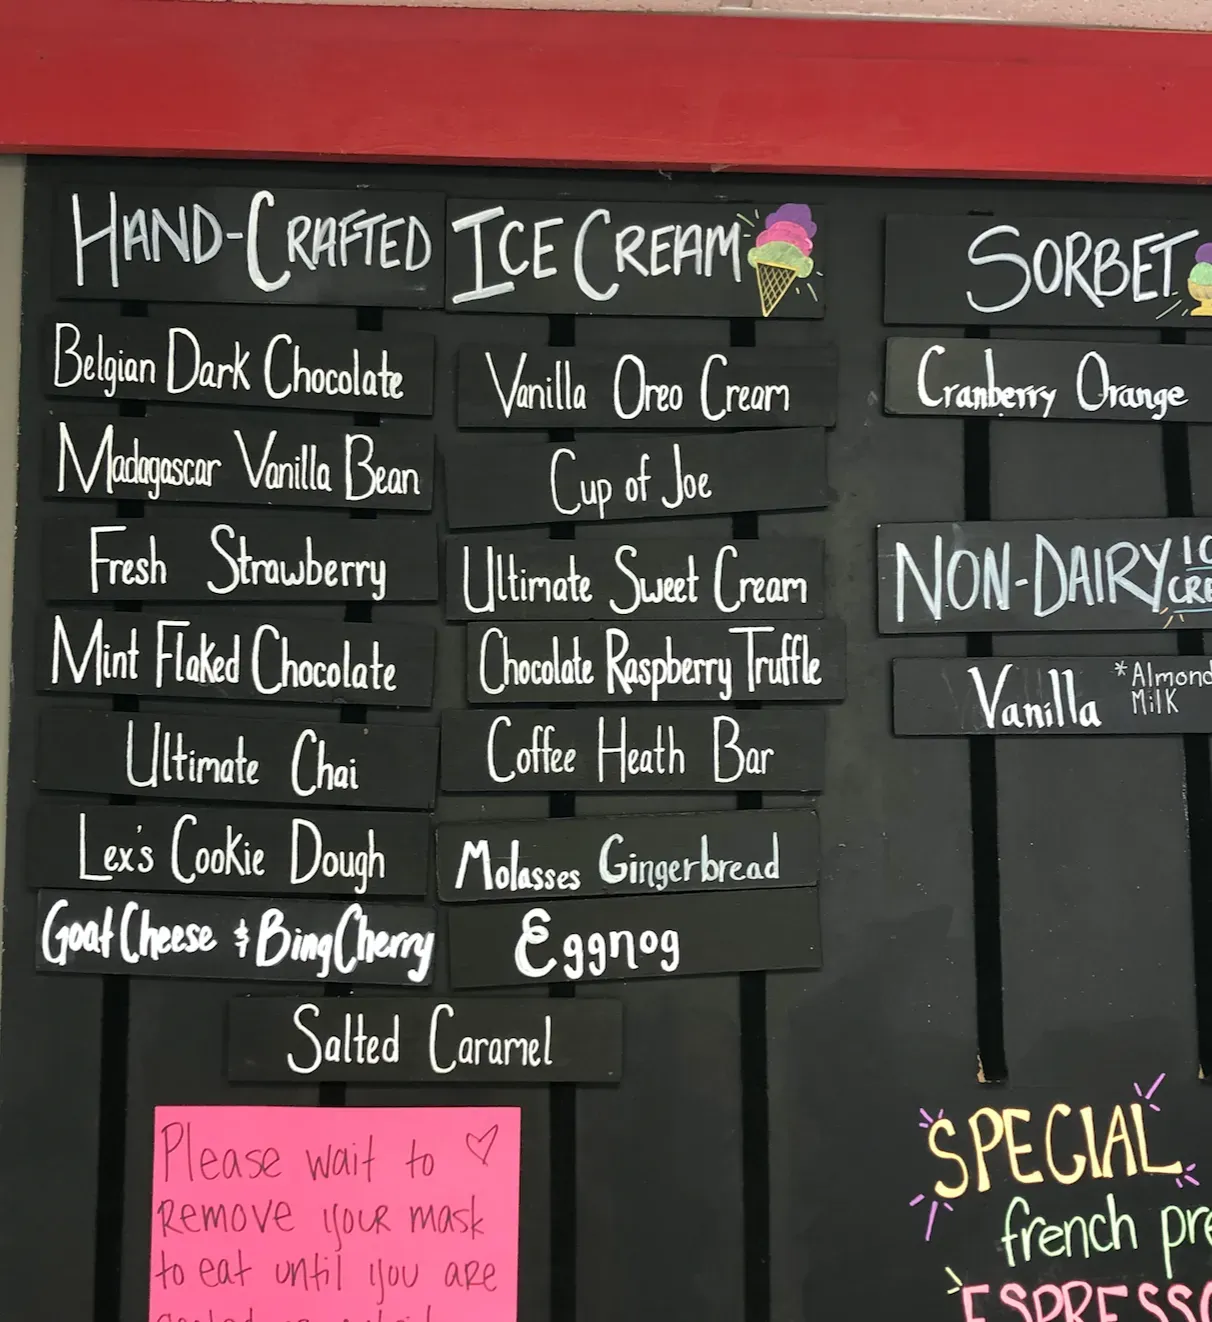 HAND-CRAFTED ICE CREAM
Belgian Dark Chocolate
Madagascar Vanilla Bean
Fresh Strawberry
Mint Flaked Chocolate
Ultimate Chai
Lex's Cookie Dough
Goat Cheese & Bing Cherry
Vanilla Oreo Cream
Cup of Joe
Ultimate Sweet Cream
Chocolate Raspberry Truffle
Coffee Heath Bar
Molasses Gingerbread
Eggnog
Salted Caramel
Please wait to
remove your mask
to eat until you are
SORBET
Cranberry Orange
NON-DAIRY
Vanilla *Almond
Milk
SPECIAL
french
ESPRESSO